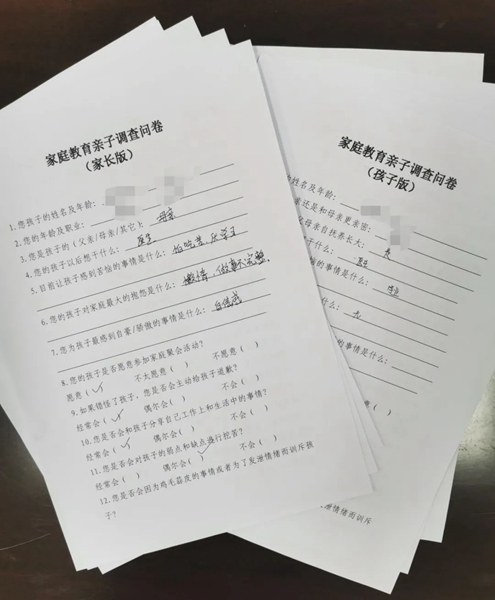 家庭教育亲子调查问卷
（家长版）
1.您孩子的姓名及年龄：
2.您的年龄及职业：
3.您是孩子的（父亲/母亲/其它）母亲
4.您的孩子以后想干什么：医生
5.目前让孩子感到苦恼的事情是什么：怕吃苦，厌学习
6.您的孩子对家庭最大的抱怨是什么：懒惰，做事不完整
7.您为孩子最感到自豪/骄傲的事情是什么：自信
8.您的孩子是否愿意参加家庭聚会活动？
愿意（✓） 不太愿意（ ） 不愿意（ ）
9.如果错怪了孩子，您是否会主动给孩子道歉？
经常会（✓） 偶尔会（ ） 不会（ ）
10.您是否会和孩子分享自己工作上和生活中的事情？
经常会（✓） 偶尔会（ ） 不会（ ）
11.您是否会对孩子的弱点和缺点进行挖苦？
经常会（ ） 偶尔会（✓） 不会（ ）
12.您是否会因为鸡毛蒜皮的事情或者为了发泄情绪而训斥孩
子？
家庭教育亲子调查问卷
（孩子版）
姓名及年龄：
亲还是和母亲更亲密：
父母亲自抚养长大：
干什么：医生
恼的事情是什么：
是什么：无
的事情是什么：
愿意（ ）
发泄情绪而训斥